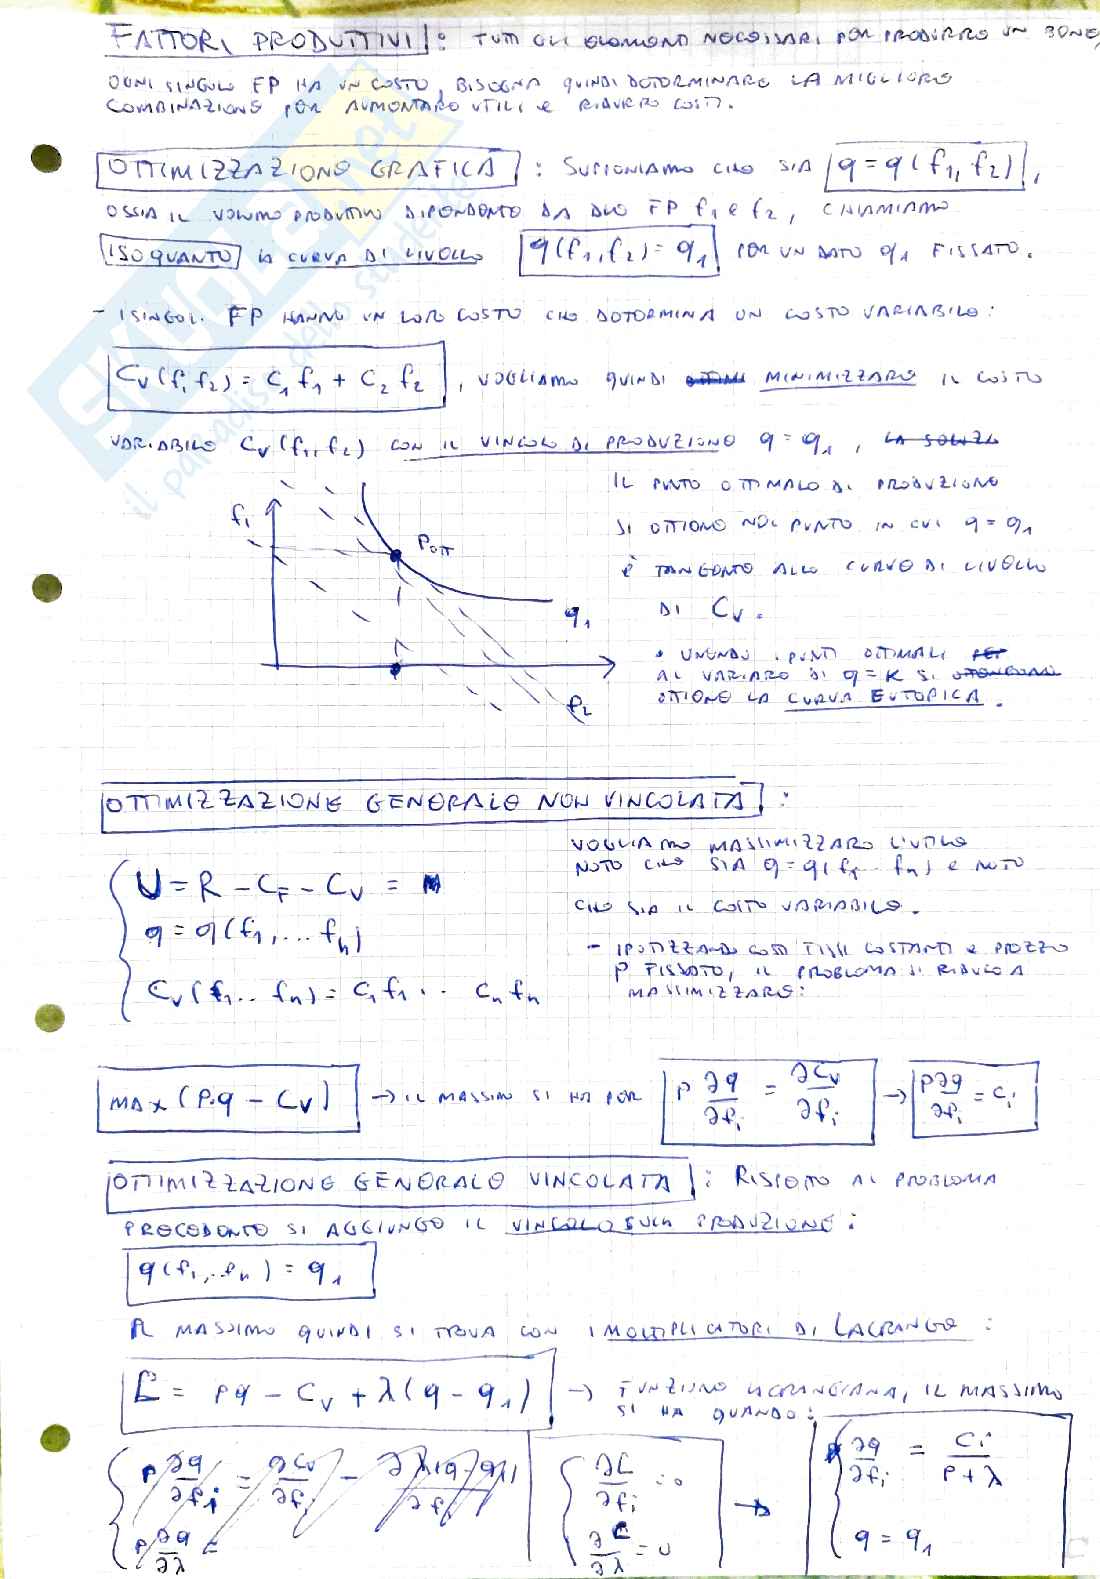 FATTORI PRODUTTIVI : TUTTI GLI ELEMENTI NECESSARI PER PRODURRE UN BENE,
OGNI SINGOLO FP HA UN COSTO, BISOGNA QUINDI DETERMINARE LA MIGLIORE
COMBINAZIONE PER AUMENTARE UTILI E RIDURRE COSTI.
OTTIMIZZAZIONE GRAFICA : SUPPONIAMO CHE SIA q = q(f1, f2),
OSSIA IL VOLUME PRODUTTIVO DIPENDENTE DA DUE FP f1 e f2, CHIAMIAMO
ISOQUANTO LA CURVA DI LIVELLO q(f1, f2) = q1 PER UN DATO q1 FISSATO.
- I SINGOLI FP HANNO UN LORO COSTO CHE DETERMINA UN COSTO VARIABILE:
Cv(f1 f2) = C1 f1 + C2 f2, VOGLIAMO QUINDI MINIMIZZARE IL COSTO
VARIABILE Cv(f1, f2) CON IL VINCOLO DI PRODUZIONE q = q1, LA SOLUZ
IL PUNTO OTTIMALE DI PRODUZIONE
SI OTTIENE NEL PUNTO IN CUI q = q1
È TANGENTE ALLE CURVE DI LIVELLO
DI Cv.
f1
POTT
q1
f2
• UNENDO I PUNTI OTTIMALI PER
AL VARIARE DI q = K SI
OTTIENE LA CURVA EUTOPICA.
OTTIMIZZAZIONE GENERALE NON VINCOLATA :
U = R - CF - CV =
q = q(f1, ... fn)
Cv(f1.. fn) = C1 f1 .. Cn fn
VOGLIAMO MASSIMIZZARE L'UTILE
NOTO CHE SIA q = q(f1.. fn) E NOTO
CHE SIA IL COSTO VARIABILE.
- IPOTIZZANDO COSTI FISSI COSTANTI E PREZZO
P FISSATO, IL PROBLEMA SI RIDUCE A
MASSIMIZZARE:
MAX (P·q - Cv) → IL MASSIMO SI HA PER P ∂q/∂fi = ∂Cv/∂fi → P∂q/∂fi = Ci
OTTIMIZZAZIONE GENERALE VINCOLATA : RISPETTO AL PROBLEMA
PRECEDENTE SI AGGIUNGE IL VINCOLO SULLA PRODUZIONE:
q(f1,..fn) = q1
IL MASSIMO QUINDI SI TROVA CON I MOLTIPLICATORI DI LAGRANGE:
L = pq - Cv + λ(q - q1) → FUNZIONE LAGRANGIANA, IL MASSIMO
SI HA QUANDO:
P ∂q/∂fi = ∂Cv/∂fi - ∂λ(q-q1)/∂f
P ∂q/∂λ =
∂L/∂fi = 0
∂L/∂λ = 0
→
∂q/∂fi = Ci/P+λ
q = q1
SKUOLA.net
il paradiso dello studente